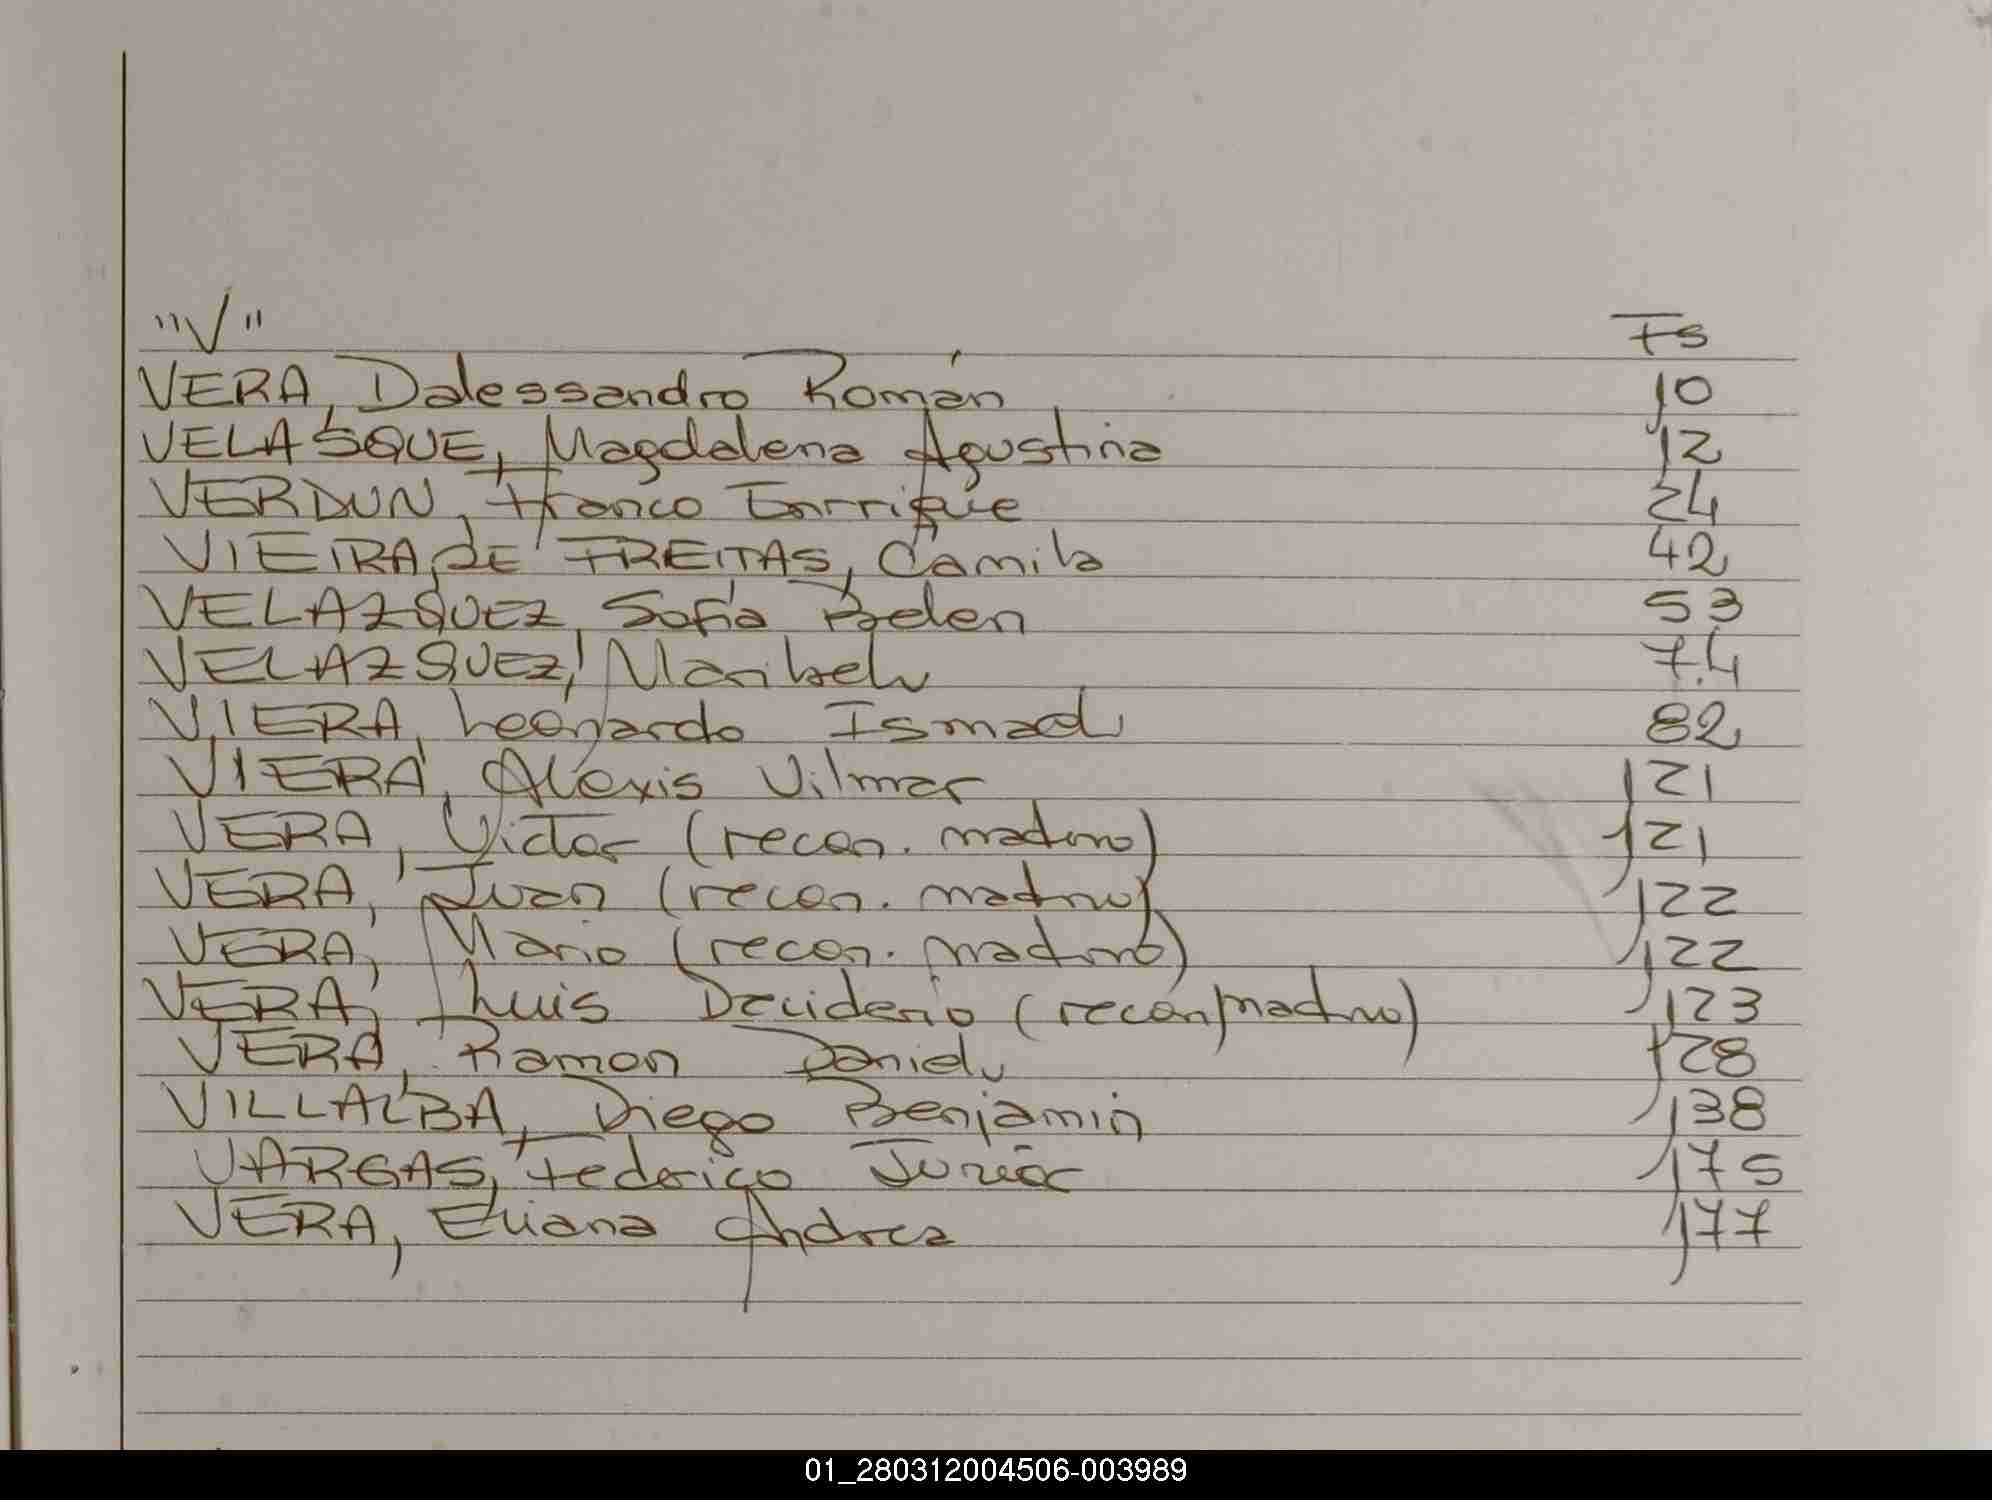 "V" Fs
VERA, Dalessandro Román 10
VELASQUE, Magdalena Agustina 12
VERDUN, Franco Enrrique 24
VIEIRA DE FREITAS, Camila 42
VELAZQUEZ, Sofía Belen 53
VELAZQUEZ, Maribel 74
VIERA, Leonardo Ismael 82
VIERA, Alexis Vilmar 121
VERA, Victor (recon. madno) 121
VERA, Juan (recon. madno) 122
VERA, Mario (recon. madno) 122
VERA, Luis Deciderio (recon madno) 123
VERA, Ramon Daniel 128
VILLALBA, Diego Benjamin 138
VARGAS, Federico Junior 175
VERA, Eliana Andrea 177
01_280312004506-003989